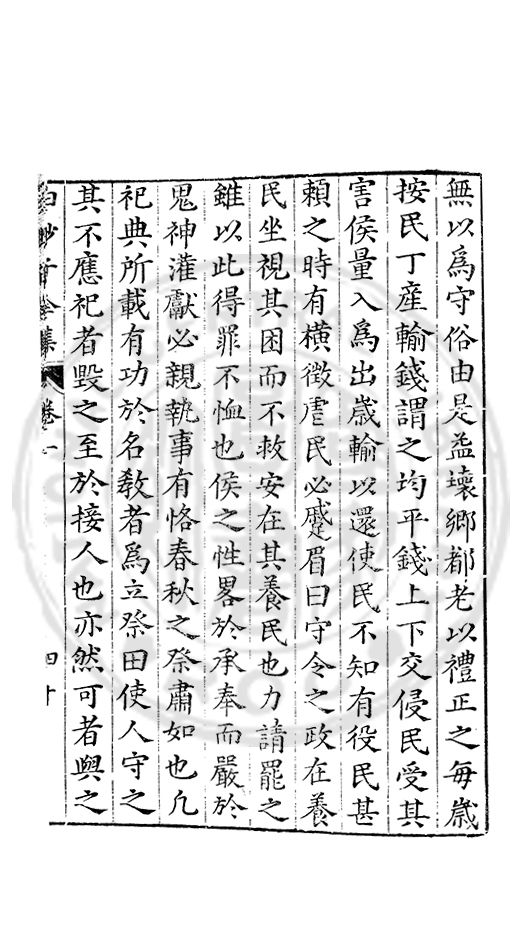 無以爲守俗由是益壞鄉都老以禮正之每歲
按民丁產輸錢謂之均平錢上下交侵民受其
害侯量入爲出歲輸以還使民不知有役民甚
賴之時有橫徵虐民必蹙眉曰守令之政在養
民坐視其困而不救安在其養民也力請罷之
雖以此得罪不恤也侯之性畧於承奉而嚴於
鬼神灌獻必親執事有恪春秋之祭肅如也凡
祀典所載有功於名教者爲立祭田使人守之
其不應祀者毀之至於接人也亦然可者與之
白沙子全集 卷一 四十